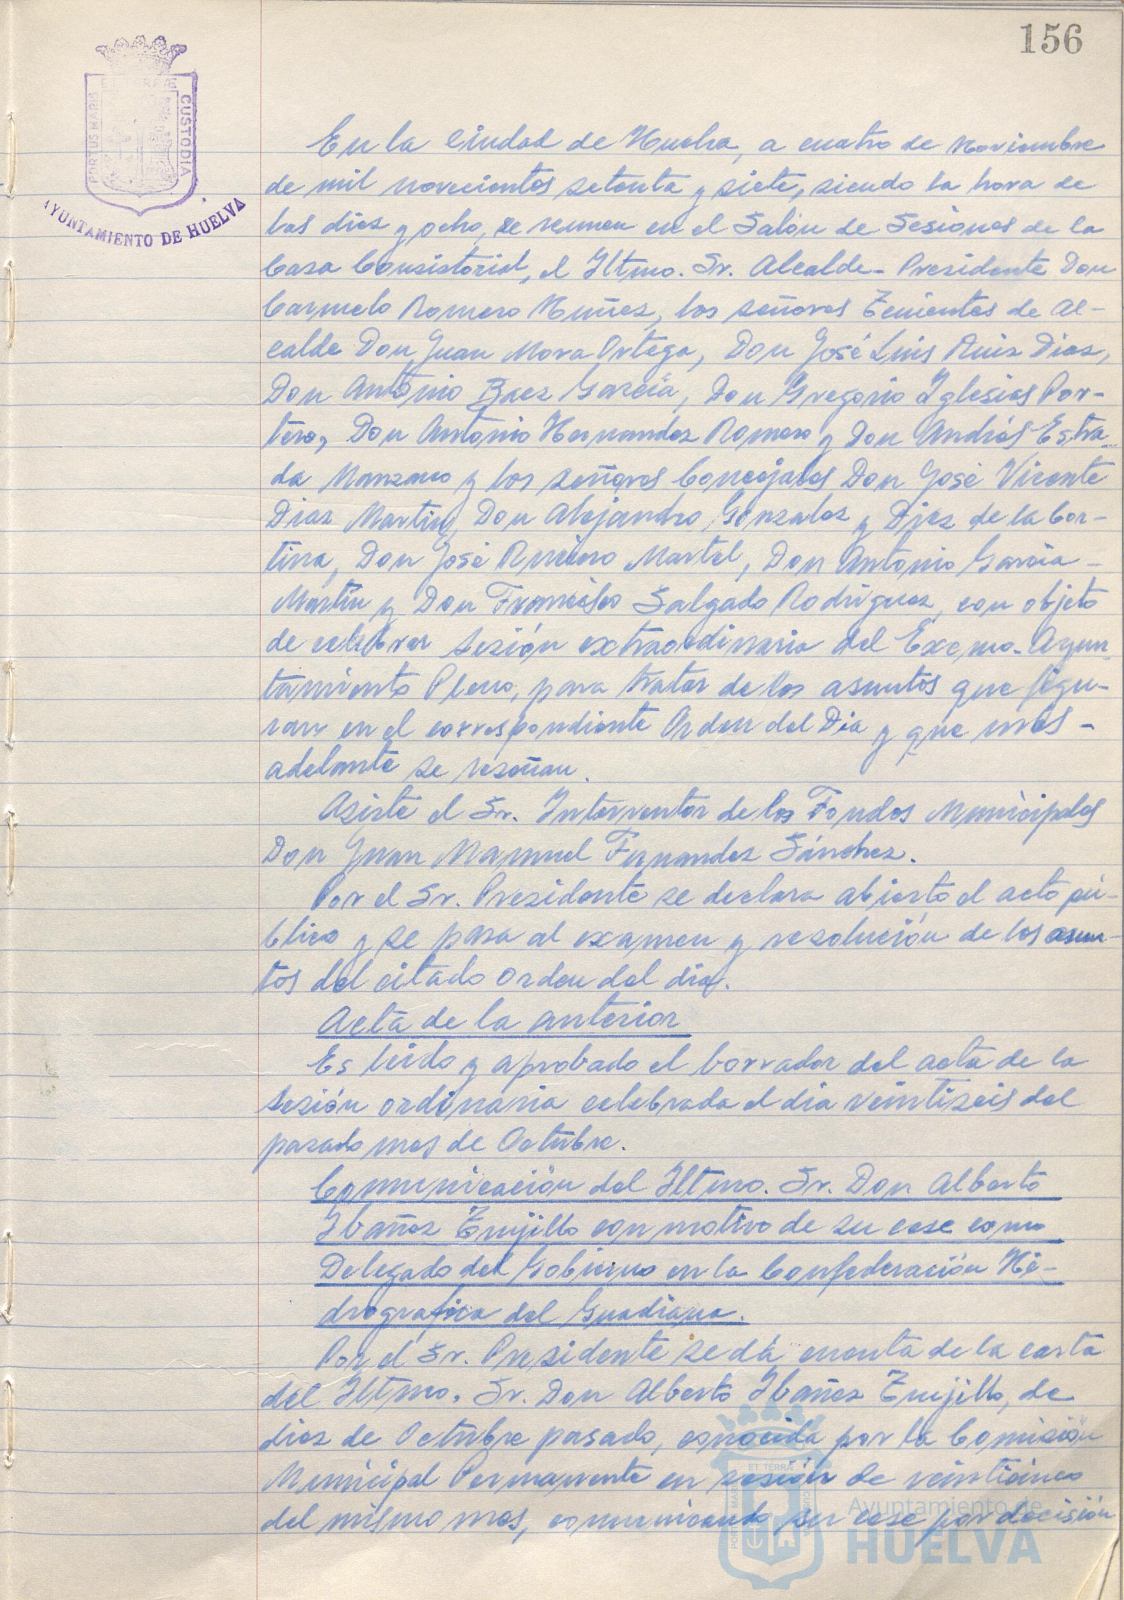 156
PORTUS MARIS ET TERRAE CUSTODIA
AYUNTAMIENTO DE HUELVA
En la Ciudad de Huelva, a cuatro de Noviembre
de mil novecientos setenta y siete, siendo la hora de
las diez y ocho, se reunen en el Salón de Sesiones de la
Casa Consistorial, el Iltmo. Sr. Alcalde-Presidente Don
Carmelo Romero Muñoz, los señores Tenientes de Al-
calde Don Juan Mora Ortega, Don José Luis Ruiz Diaz,
Don Antonio Baez García, Don Gregorio Iglesias Por-
tero, Don Antonio Hernandez Romero y Don Andrés Estra-
da Manzano y los señores Concejales Don José Vicente
Diaz Martin, Don Alejandro Gonzalez y Diez de la Cor-
tina, Don José Martel, Don Antonio García
Martín y Don Francisco Salgado Rodriguez, con objeto
de celebrar sesión extraordinaria del Excmo. Ayun-
tamiento Pleno, para tratar de los asuntos que figu-
ran en el correspondiente Orden del Dia y que mas-
adelante se reseñan.
Asiste el Sr. Interventor de los Fondos Municipales
Don Juan Manuel Fernandez Sánchez.
Por el Sr. Presidente se declara abierto el acto pú-
blico y se pasa al examen y resolución de los asun-
tos del citado orden del dia.
Acta de la anterior
Es leido y aprobado el borrador del acta de la
sesión ordinaria celebrada el dia veintiseis del
pasado mes de Octubre.
Comunicación del Iltmo. Sr. Don Alberto
Ibañez Trujillo con motivo de su cese como
Delegado del Gobierno en la Confederación Hi-
drografica del Guadiana.
Por el Sr. Presidente se dá cuenta de la carta
del Iltmo. Sr. Don Alberto Ibañez Trujillo, de
diez de Octubre pasado, conocida por la Comisión
Municipal Permanente en sesión de veinticinco
del mismo mes, comunicando su cese por decisión
Ayuntamiento de
HUELVA